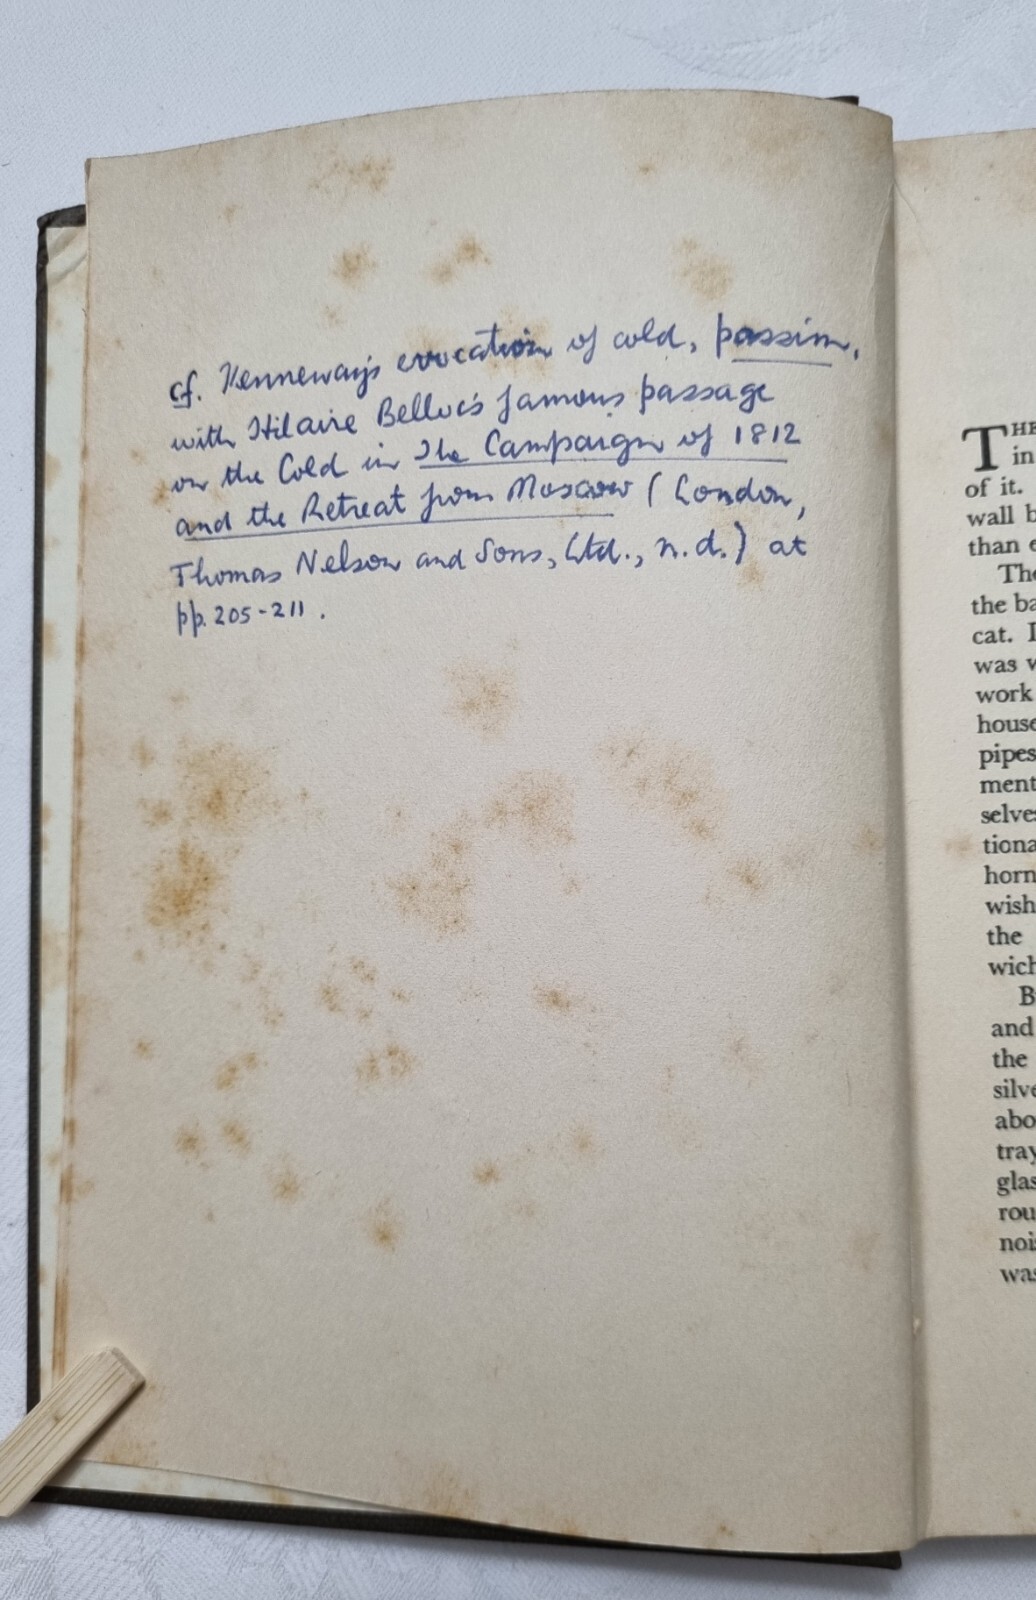 cf. Kenneway's evocation of cold, passim,
with Hilaire Belloc's famous passage
on the Cold in The Campaign of 1812
and the Retreat from Moscow (London,
Thomas Nelson and Sons, Ltd., n.d.) at
pp. 205-211.
THE
in
of it.
wall b
than e
The
the ba
cat. I
was w
work
house
pipes
ment
selves
tiona
horn
wish
the
wich
B
and
the
silve
abo
tray
glas
rou
noi
was